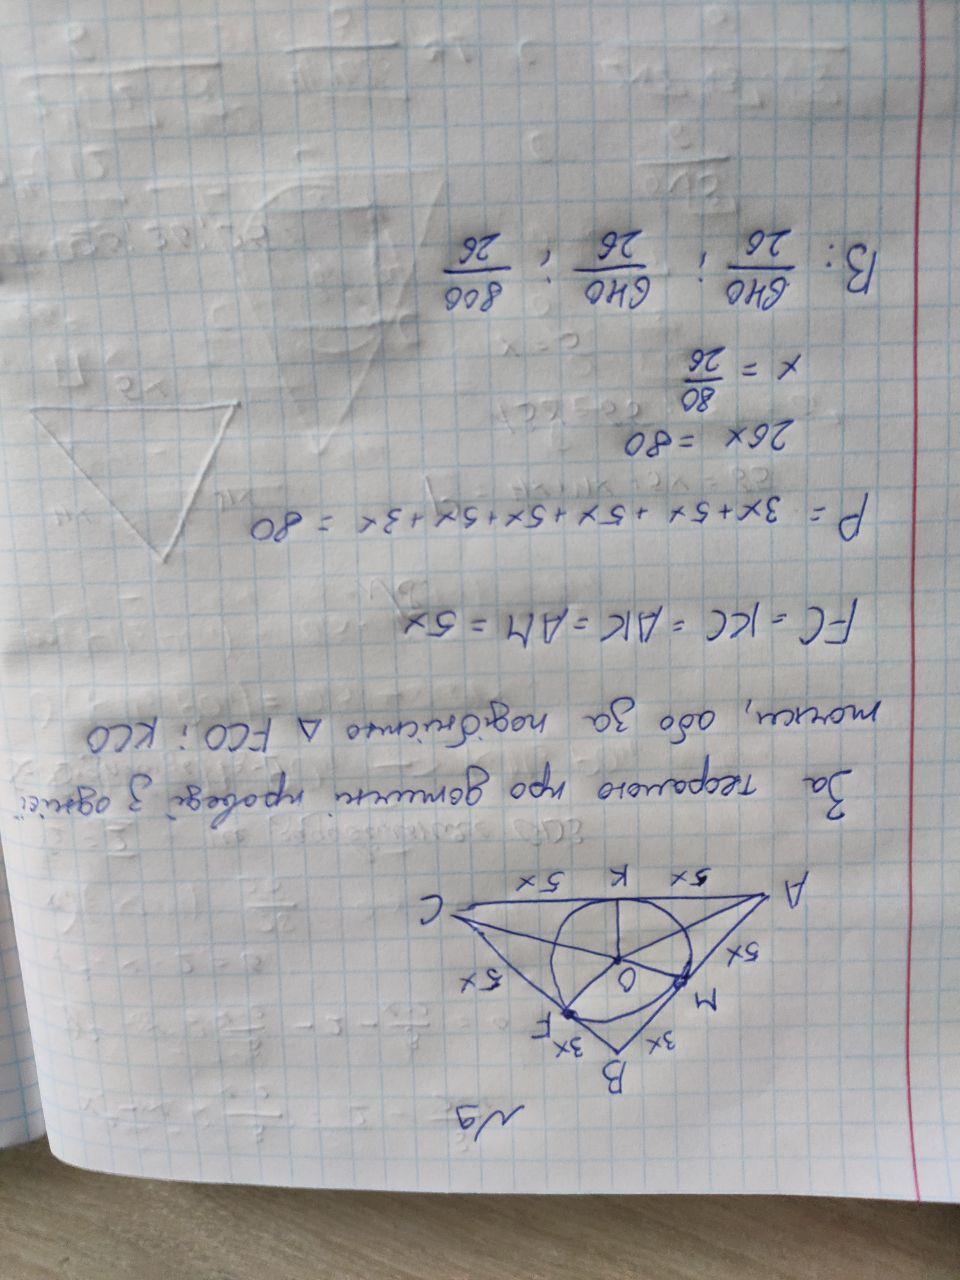 №9
B
3x 3x
M F
5x O 5x
A 5x K 5x C
За теорамою про дотични проведі з однієї
точки, або за подібністю Δ FCO і KCO
FC = KC = AK = AM = 5x
P = 3x+5x+5x+5x+5x+3x = 80
26x = 80
x = 80/26
В: 640/26 ; 640/26 ; 800/26